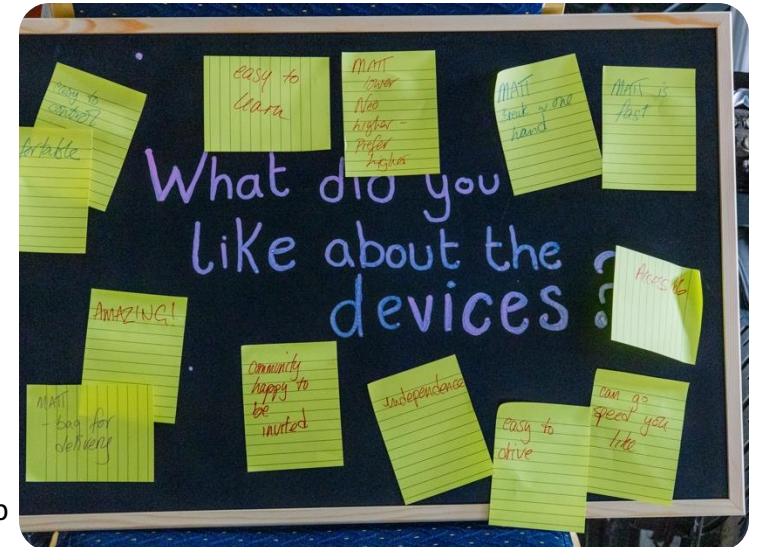 easy to
control
easy to
learn
MATT
lower
Neo
higher -
Prefer
higher
MATT
break w one
hand
MATT is
fast
What did you
like about the
devices?
AMAZING!
MATT
- bag for
delivery
Community
happy to
be
invited
independence
easy to
drive
can go
speed you
like